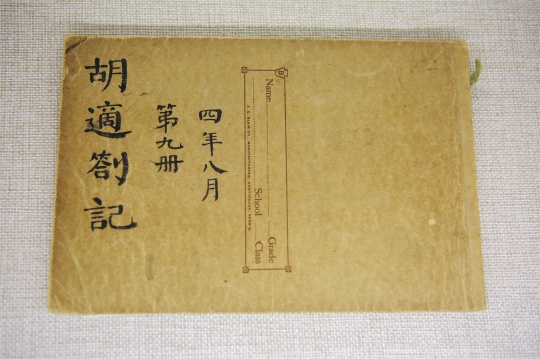 胡適劄記
第九册
四年八月
Name
School
Grade
Class